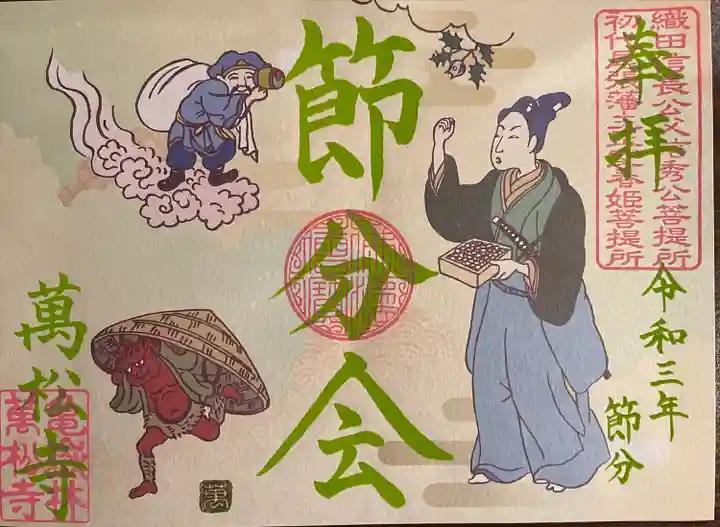 奉拝
織田信長公父君信秀公菩提所
初代尾張藩主正室春姫菩提所
令和三年
節分
節分会
萬松寺
亀嶽林
萬松寺
萬